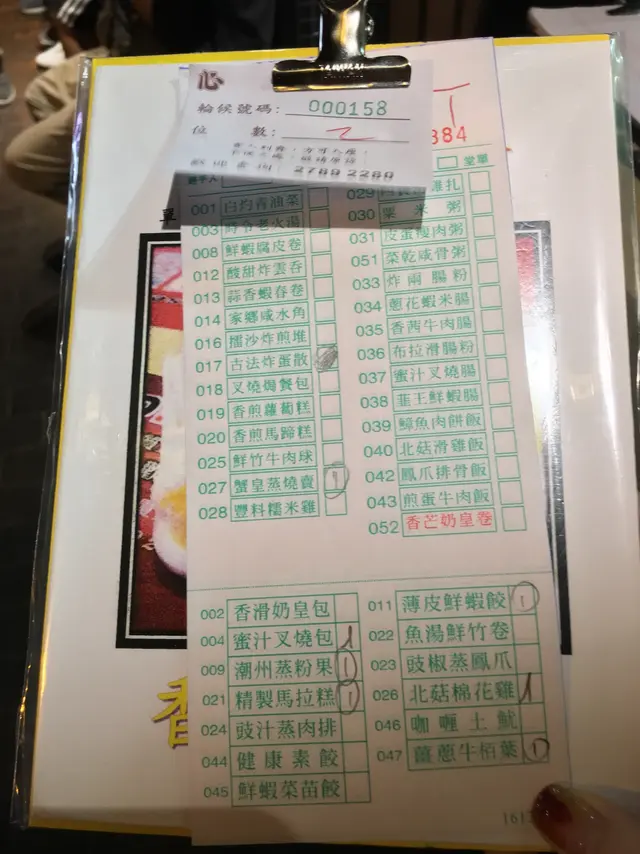 心
輪候號碼: 000158
位 數: 2
2789 2280
384
堂單
單
001 白灼青油菜
003 時令老火湯
008 鮮蝦腐皮卷
012 酸甜炸雲吞
013 蒜香蝦春卷
014 家鄉咸水角
016 擂沙炸煎堆
017 古法炸蛋散
018 叉燒焗餐包
019 香煎蘿蔔糕
020 香煎馬蹄糕
025 鮮竹牛肉球
027 蟹皇蒸燒賣 1
028 豐料糯米雞
029 雞扎
030 粟米粥
031 皮蛋瘦肉粥
051 菜乾咸骨粥
033 炸兩腸粉
034 蔥花蝦米腸
035 香茜牛肉腸
036 布拉滑腸粉
037 蜜汁叉燒腸
038 韭王鮮蝦腸
039 鱆魚肉餅飯
040 北菇滑雞飯
042 鳳爪排骨飯
043 煎蛋牛肉飯
052 香芒奶皇卷
002 香滑奶皇包
004 蜜汁叉燒包 1
009 潮州蒸粉果 1
021 精製馬拉糕 1
024 豉汁蒸肉排
044 健康素餃
045 鮮蝦菜苗餃
011 薄皮鮮蝦餃 1
022 魚湯鮮竹卷
023 豉椒蒸鳳爪
026 北菇棉花雞 1
046 咖喱土魷
047 薑蔥牛栢葉 1
161
香